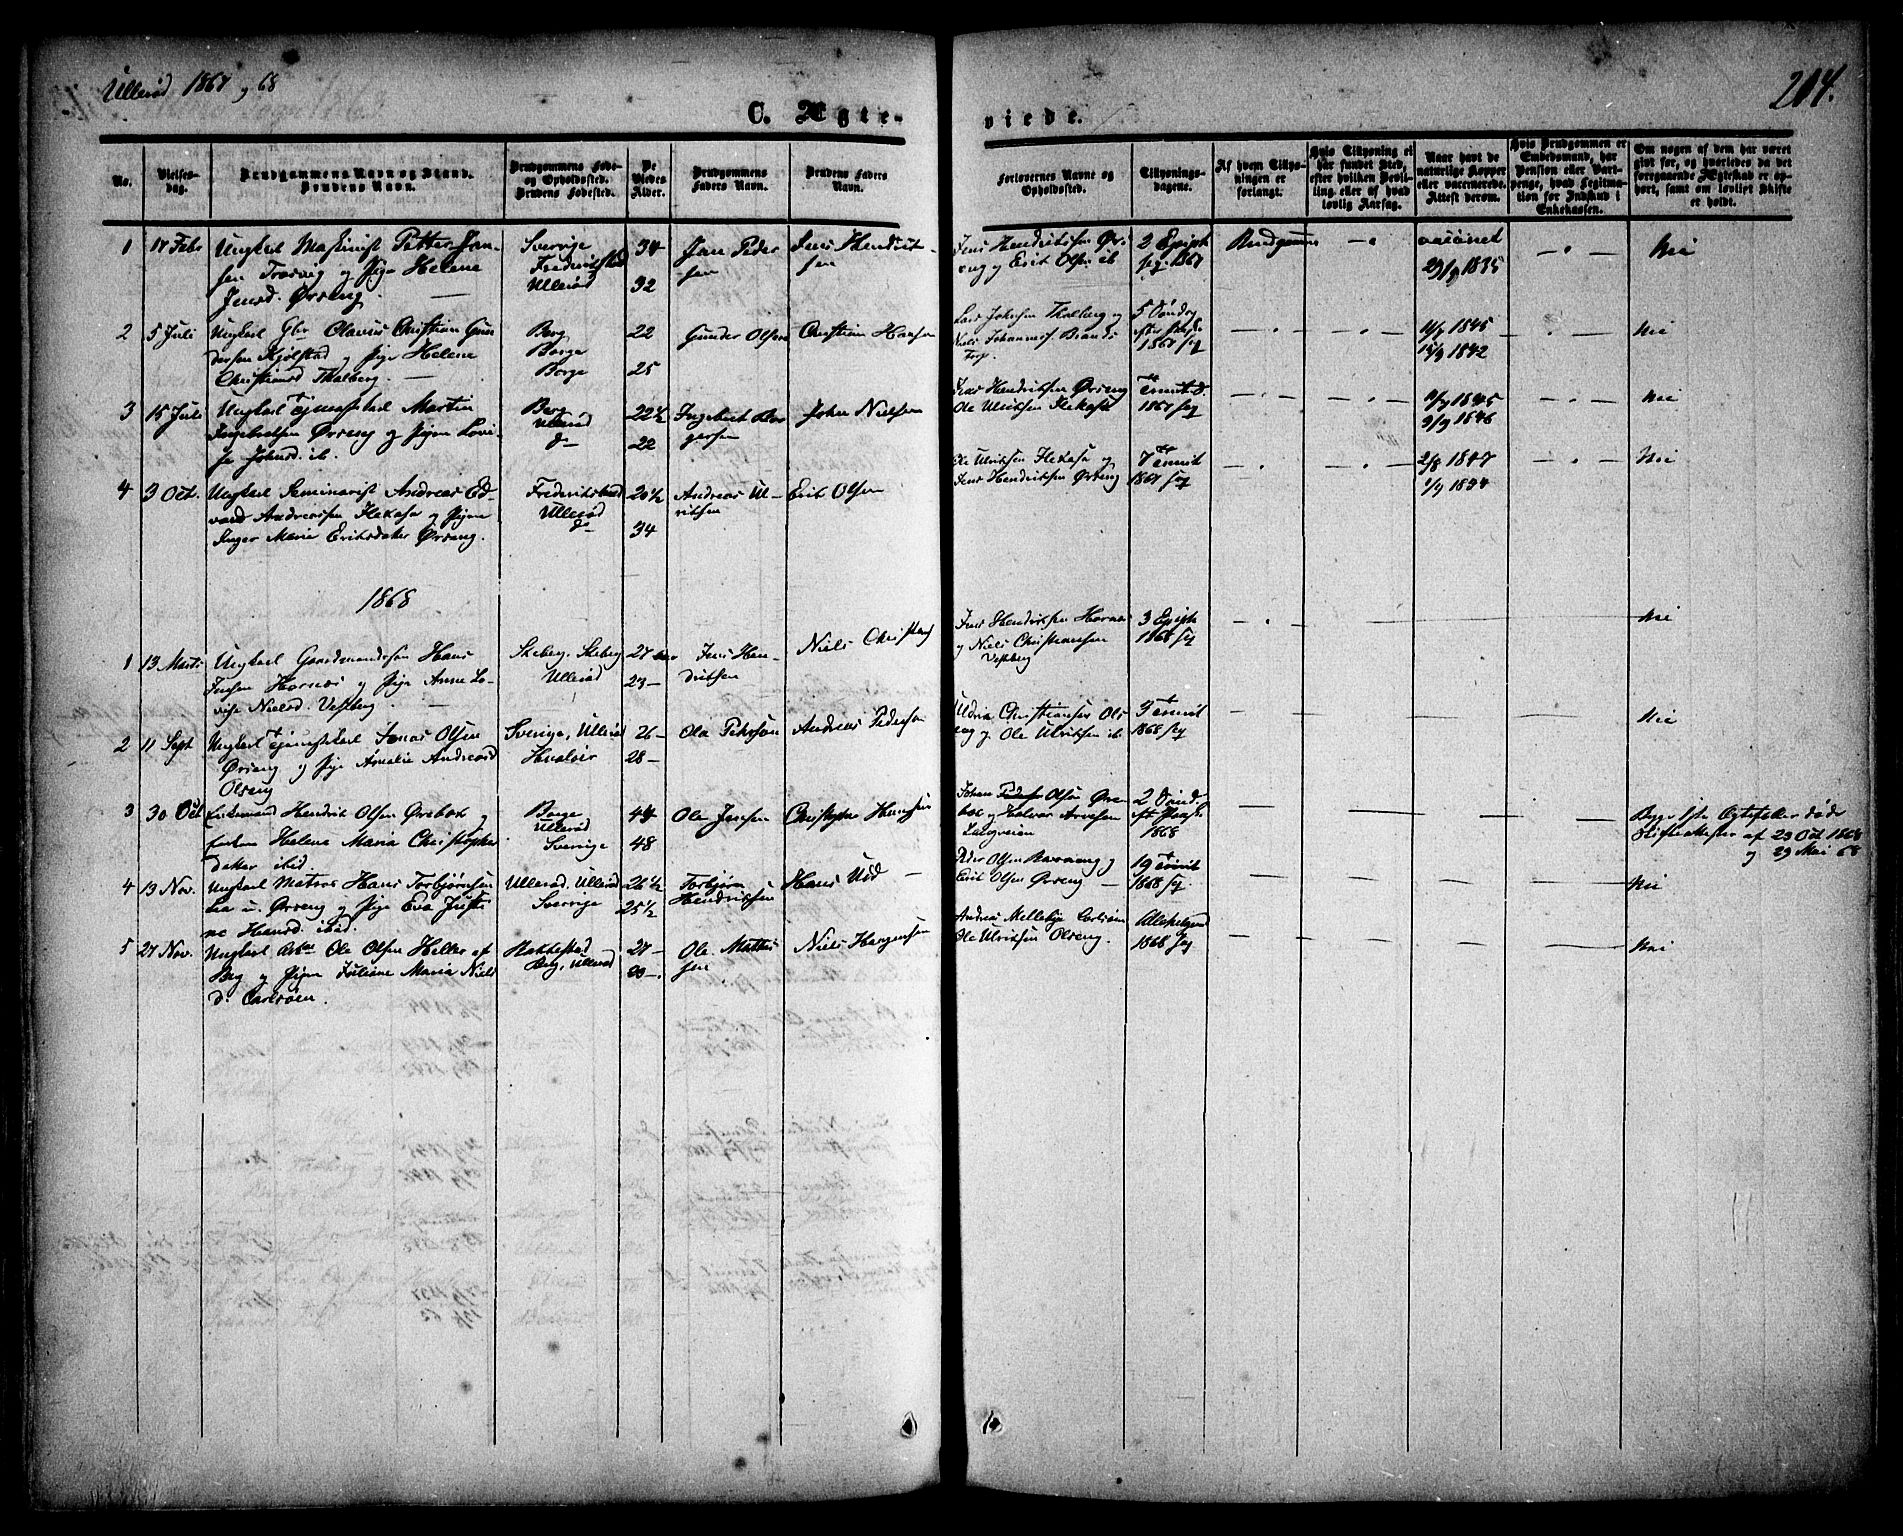 Ullerød 1867 og 68
204.
C. Ægte-
viede.
No.
Vielses-
dag.
Brudgommens Navn og Stand.
Brudens Navn.
Brudgommens Føde-
og Opholdssted.
Brudens Fødested.
De
Viedes
Alder.
Brudgommens
Faders Navn.
Brudens Faders
Navn.
Forlovernes Navne og
Opholdssted.
Tillysnings-
dagene.
Af hvem Tillys-
ningen er
forlangt.
Hvis Tillysning ei
har fundet Sted,
efter hvilken Bevil-
ling eller af hvad
lovlig Aarsag.
Naar havt de
naturlige Kopper
eller vaccinerede.
Attest derom.
Hvis Brudgommen er
Embedsmand, har
Pension eller Vart-
penge, hvad Legitima-
tion for Indskud i
Enkekassen.
Om nogen af dem har været
gift før, og hvorledes da det
foregaaende Ægteskab er op-
hørt, samt om lovligt Skifte
er holdt.
1 17 Febr Ungkarl Maskinist Petter Jan-
sen Torsvig og Pige Helene
Jensd. Ørseng.
Sverrige
Fredrikstad
Ullerød
34
32
Jan Peder
sen
Jens Hendrik-
sen
Jens Hendriksen Ør-
seng og Erik Olsen ib
2 Epiph
1867
Brudgommen
vaccinet
29/9 1835
Nei
2 5 Juli Ungkarl Gbr Olavus Christian Gun
dersen Kjølstad og Pige Helene
Christiansd Thalberg.
Berg
Borge
Borge
22
25
Gunder Olsen
Christian Hansen
Lars Johnsen Thalberg og
Niels Johannes Brands
Torp.
5 Søndag
efter Paaske
1867
11/9 1845
15/9 1842
Nei
3 15 Juli Ungkarl Tjenestekarl Martin
Ingebretsen Ørseng og Pigen Lovi-
se Johnsd. ib.
Berg
Ullerød
do
22 1/2
22
Ingebret Bør
gersen
John Nielsen
Jens Hendriksen Ørseng
Ole Ulriksen Flekasa
1867
1845
9/9 1846
Nei
4 3 Oct. Ungkarl Seminarist Andreas Ed-
vard Andreassen Flekasa og Pigen
Inger Maria Eriksdatter Ørseng.
Fredrikstad
Ullerød
do
20 1/2
34
Andreas Ul-
riksen
Erik Olsen
Ole Ulriksen Flekasa og
Jens Hendriksen Ørseng
1867
2/8 1847
1/9 1834
Nei
1868
1 13 Marts Ungkarl Gaardmandssøn Hans
Jensen Hornæs og Pige Anne Lo-
vise Nielsd. Vestberg.
Skeberg. Skeberg
Ullerød
27
23
Jens Hen-
driksen
Niels Christians
Jens Hendriksen Hornæs
og Niels Christiansen
Vestberg
3 Epiph
1868
Nei
2 11 Sept Ungkarl Tjenestekarl Jonas Olsen
Ørseng og Pige Amalie Andreasd
Olseng
Sverige, Ullerød
Hvaløer
26
28
Ole Pehrson
Andreas Pederson
Christiansen Ols
eng og Ole Ulriksen ib.
1868
Nei
3 30 Oct Enkemand Hendrik Olsen Ørebæk og
Enken Helene Maria Christopher
datter ibid.
Borge
Ullerød
Sverrige
44
48
Ole Jensen
Christopher Hansen
Johan Olsen Øre-
bæk og Halvor Arvesen
2 Sønd.
1868
Begge sidste Ægtefæller døde
Skifteattester af 23 Oct 1868
og 29 Mai 68
4 13 Nov. Ungkarl Matros Hans Torbjørnsen
Lia u. Ørseng og Pige Eva Justi
ne Hansd. ibid.
Ullerød. Ullerød
Sverrige
26 1/2
25 1/2
Torbjørn
Hendriksen
Hans Udd
Peder Olsen Ravneng og
Erik Olsen Ørseng
1868
Nei
5 27 Nov. Ungkarl Arbr Ole Olsen Heller af
Berg og Pigen Juliane Maria Niels
d. Carlsøen.
Rakkestad
Berg, Ullerød
27
Ole Mathis
sen
Niels Hansen
Andreas Mellebye Carlsøen
Ole Ulriksen Olseng.
Allehelgens
1868
Nei